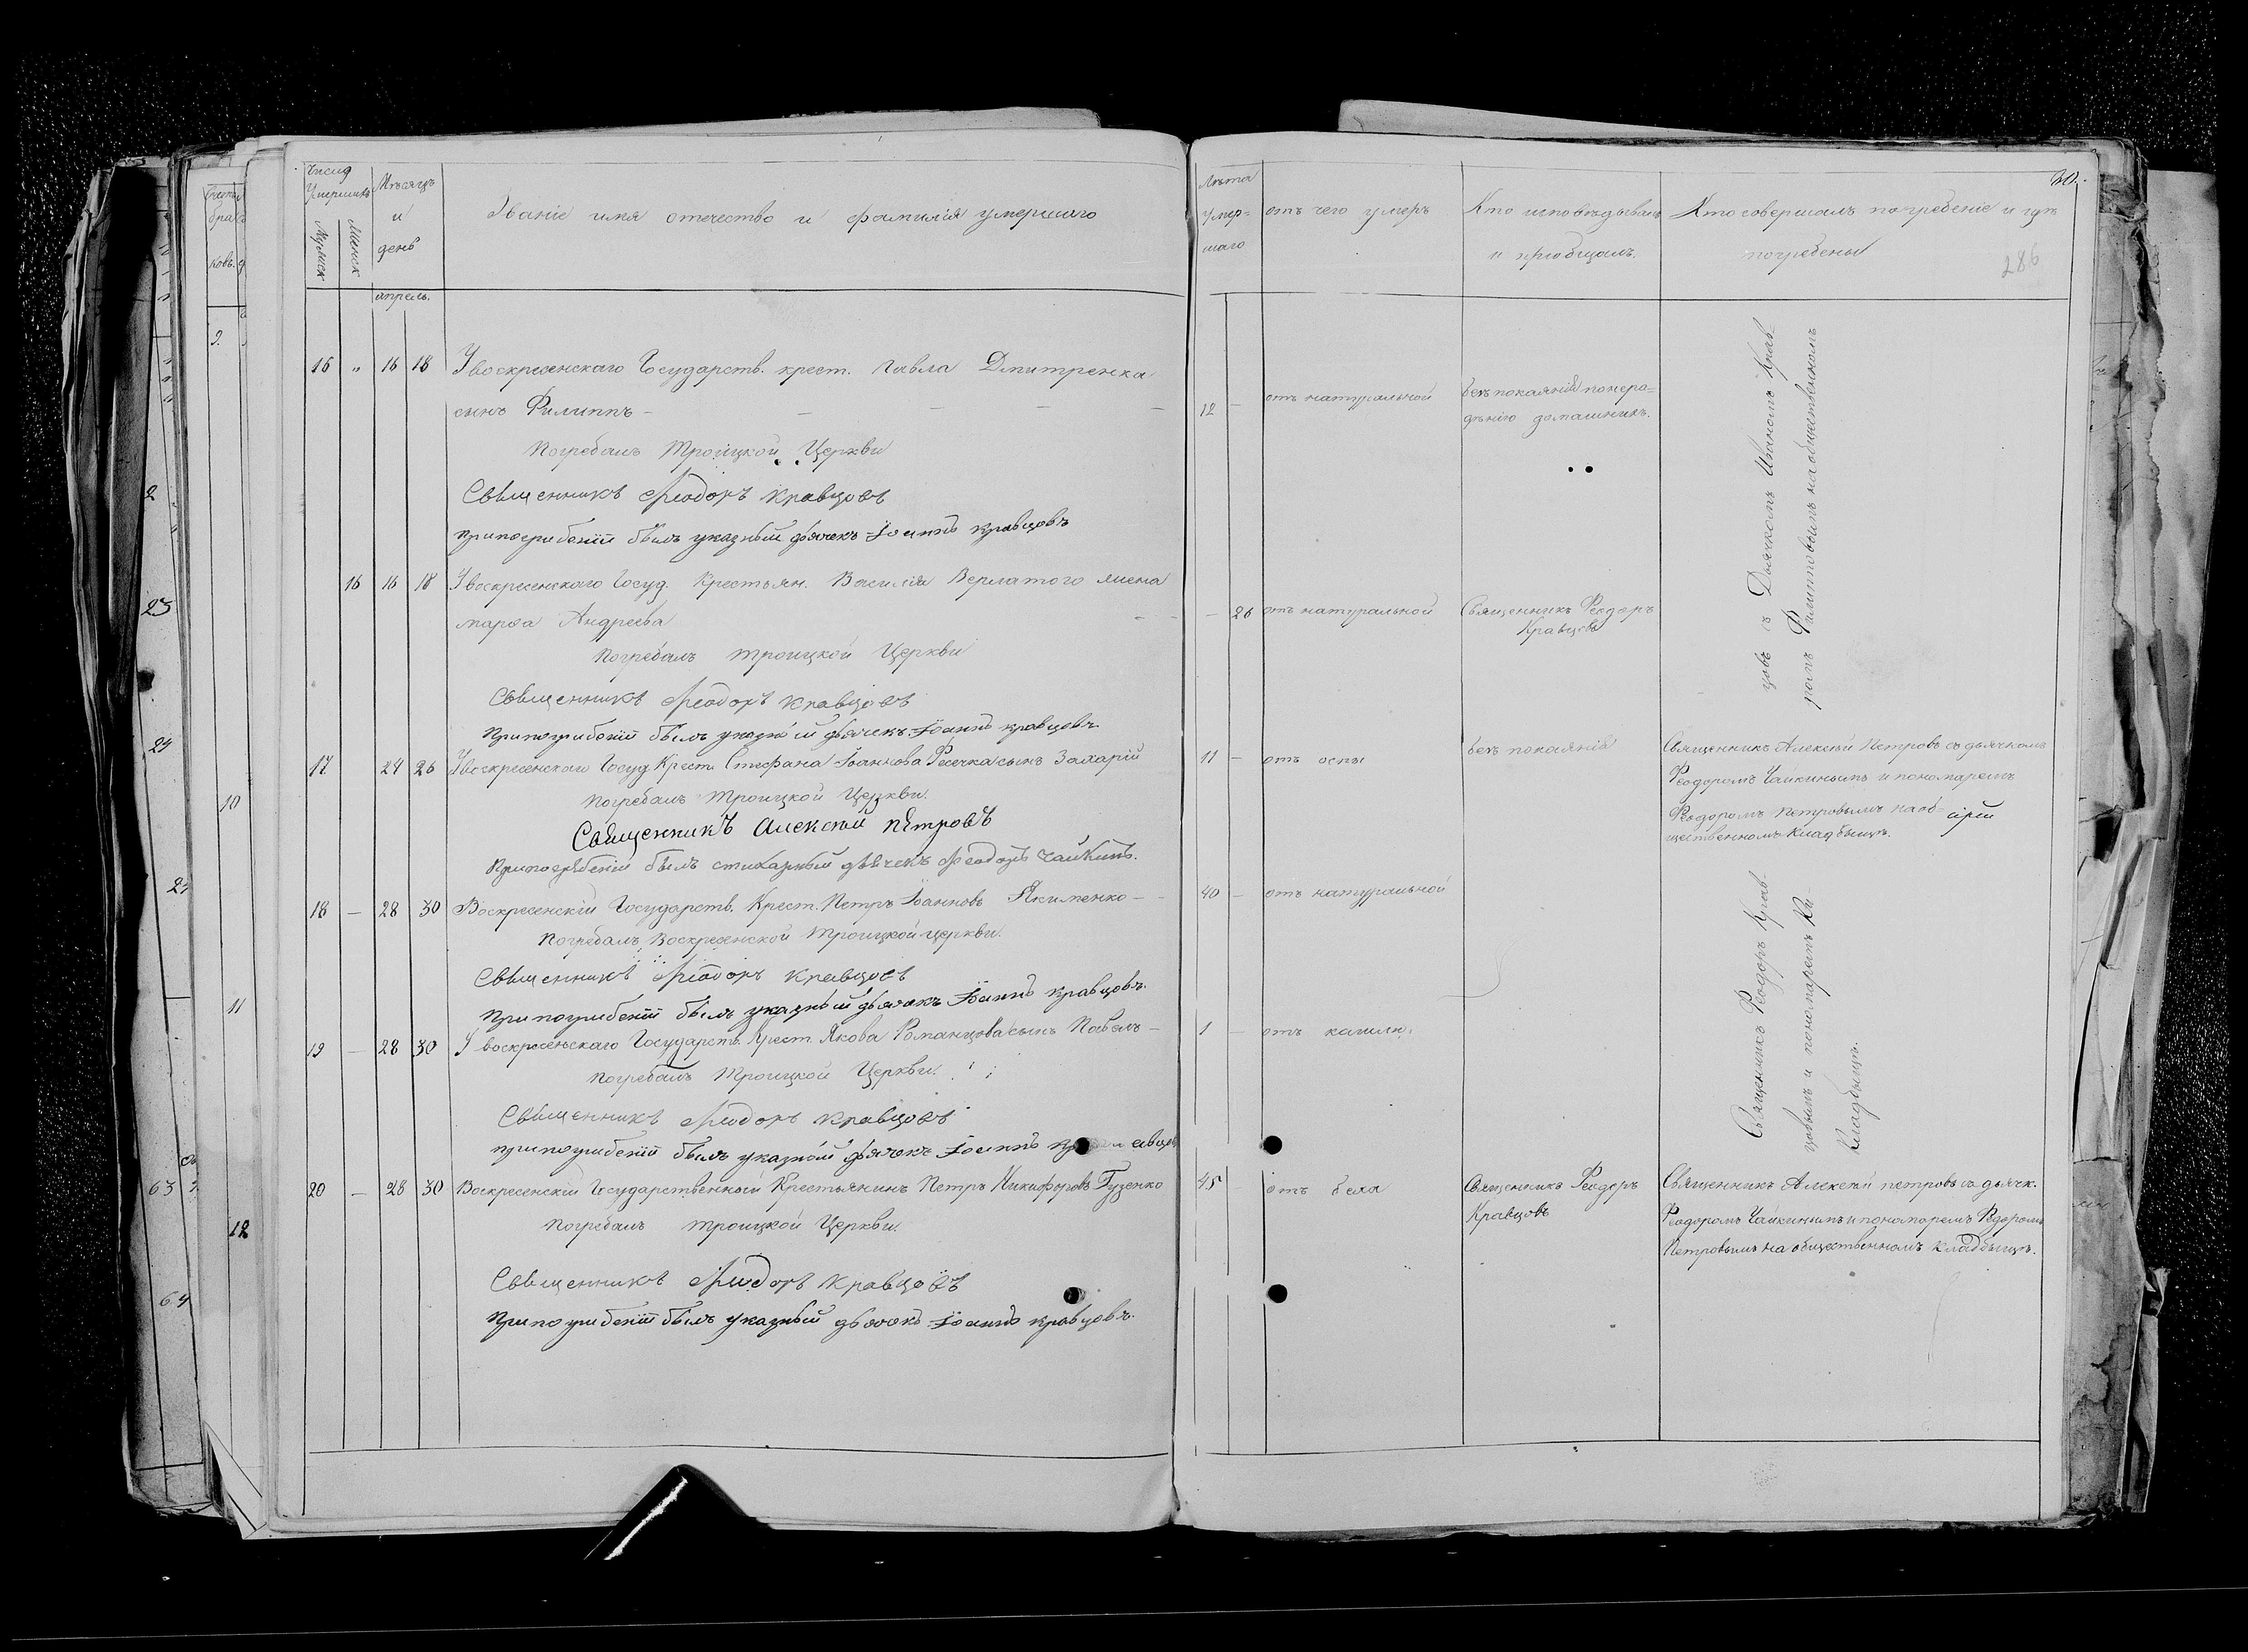 Число
Умершихъ
Мужеск
Женск
Мѣсяцъ
и
день
Званіе имя отечество и фамилія умершаго
Лѣта
умер=
шаго
отъ чего умеръ
Кто исповѣдывалъ
и пріобщалъ.
Кто совершалъ погребеніе и гдѣ
погребены
286
апрель.
16 " 16 18 У воскресенскаго Государств. крест. Павла Дмитренка
сынъ Филиппъ - - - - -
12 - отъ натуральной
безъ покаянія понера=
дѣнію домашнихъ.
Погребалъ Троицкой Церкви
Священникъ Феодоръ Кравцовъ
При погребеніи былъ указный дьячекъ Іоаннъ Кравцовъ
16 16 18 У воскресенскаго Госуд. Крестьян. Василія Верлатого жена
марѳа Андреева - -
- 26 отъ натуральной
Священникъ Феодоръ
Кравцовъ
Погребалъ Троицкой Церкви
Священникъ Феодоръ Кравцовъ
При погребеніи былъ указный дьячекъ Іоаннъ Кравцовъ
цовъ съ Дьячкомъ Иваномъ Крав-
ромъ Филиповымъ на общественномъ
17 24 26 У воскресенскаго Госуд. Крест. Стефана Іоаннова Фесечка сынъ Захарій
11 - отъ оспы
безъ покаянія
Священникъ Алексѣй Петровъ съ дьячкомъ
Феодоромъ Чайкинымъ и пономаремъ
Феодоромъ Петровымъ на об-
щественномъ Кладбищѣ.
Погребалъ Троицкой Церкви.
Священникъ Алексѣй Петровъ
При погребеніи былъ стихарный дьячекъ Феодоръ Чайкинъ.
18 - 28 30 Воскресенскій Государств. Крест. Петръ Іоанновъ Якименко - -
40 - отъ натуральной
Погребалъ Воскресенской Троицкой церкви.
Священникъ Феодоръ Кравцовъ
При погребеніи былъ указный дьячекъ Іоаннъ Кравцовъ.
19 - 28 30 У воскресенскаго Государств. Крест. Якова Романцова сынъ Павелъ -
1 - отъ кашлю.
Погребалъ Троицкой Церкви.
Священникъ Феодоръ Кравцовъ
При погребеніи былъ указной дьячекъ Іоаннъ
Священникъ Феодоръ Крав-
цовымъ и пономаремъ Ки-
Кладбищѣ.
20 - 28 30 Воскресенскій Государственный Крестьянинъ Петръ Никифоровъ Гузенко
45 отъ
Священникъ Феодоръ
Кравцовъ
Священникъ Алексѣй Петровъ съ дьячк.
Феодоромъ Чайкинымъ и пономаремъ Федоромъ
Петровымъ на общественномъ кладбищѣ.
Погребалъ Троицкой Церкви.
Священникъ Феодоръ Кравцовъ
При погребеніи былъ указный дьячекъ Іоаннъ Кравцовъ.